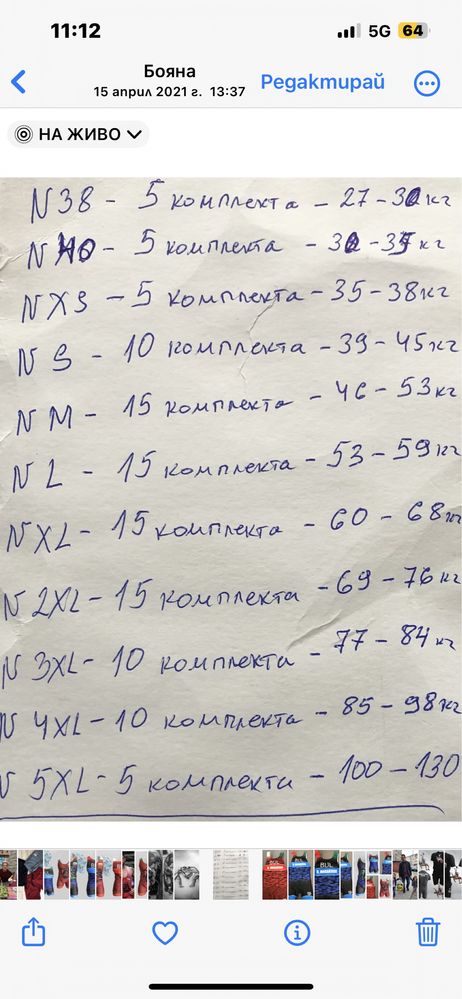 11:12
5G 64
Бояна
15 април 2021 г. 13:37
Редактирай
НА ЖИВО
N 38 - 5 комплекта - 27-30 кг
N 40 - 5 комплекта - 30-35 кг
N XS - 5 комплекта - 35-38 кг
N S - 10 комплекта - 39-45 кг
N M - 15 комплекта - 46-53 кг
N L - 15 комплекта - 53-59 кг
N XL - 15 комплекта - 60-68 кг
N 2XL - 15 комплекта - 69-76 кг
N 3XL - 10 комплекта - 77-84 кг
N 4XL - 10 комплекта - 85-98 кг
N 5XL - 5 комплекта - 100-130